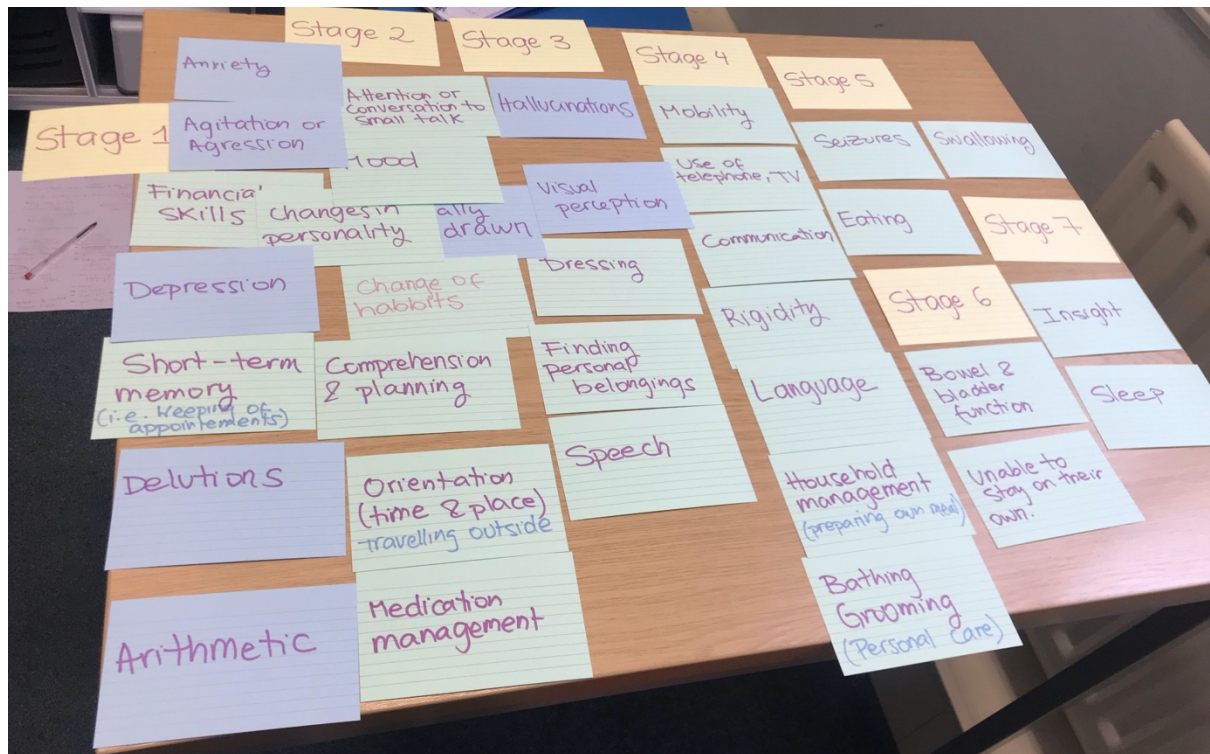 Stage 1
Anxiety
Agitation or
Agression
Financial
Skills
changes in
personality
Depression
Short-term
memory
(i.e. keeping of
appointements)
Delutions
Arithmetic
Stage 2
Attention or
conversation to
small talk
Change of
habbits
Comprehension
& planning
Orientation
(time & place)
travelling outside
Medication
management
Stage 3
Hallucinations
ally
drawn
Visual
perception
Dressing
Finding
personal
belongings
Speech
Stage 4
Mobility
Use of
telephone, TV
Communication
Rigidity
Language
Household
management
(preparing own meal)
Bathing
Grooming
(Personal Care)
Stage 5
Seizures
Swallowing
Eating
Stage 6
Bowel &
bladder
function
Unable to
stay on their
own.
Stage 7
Insight
Sleep